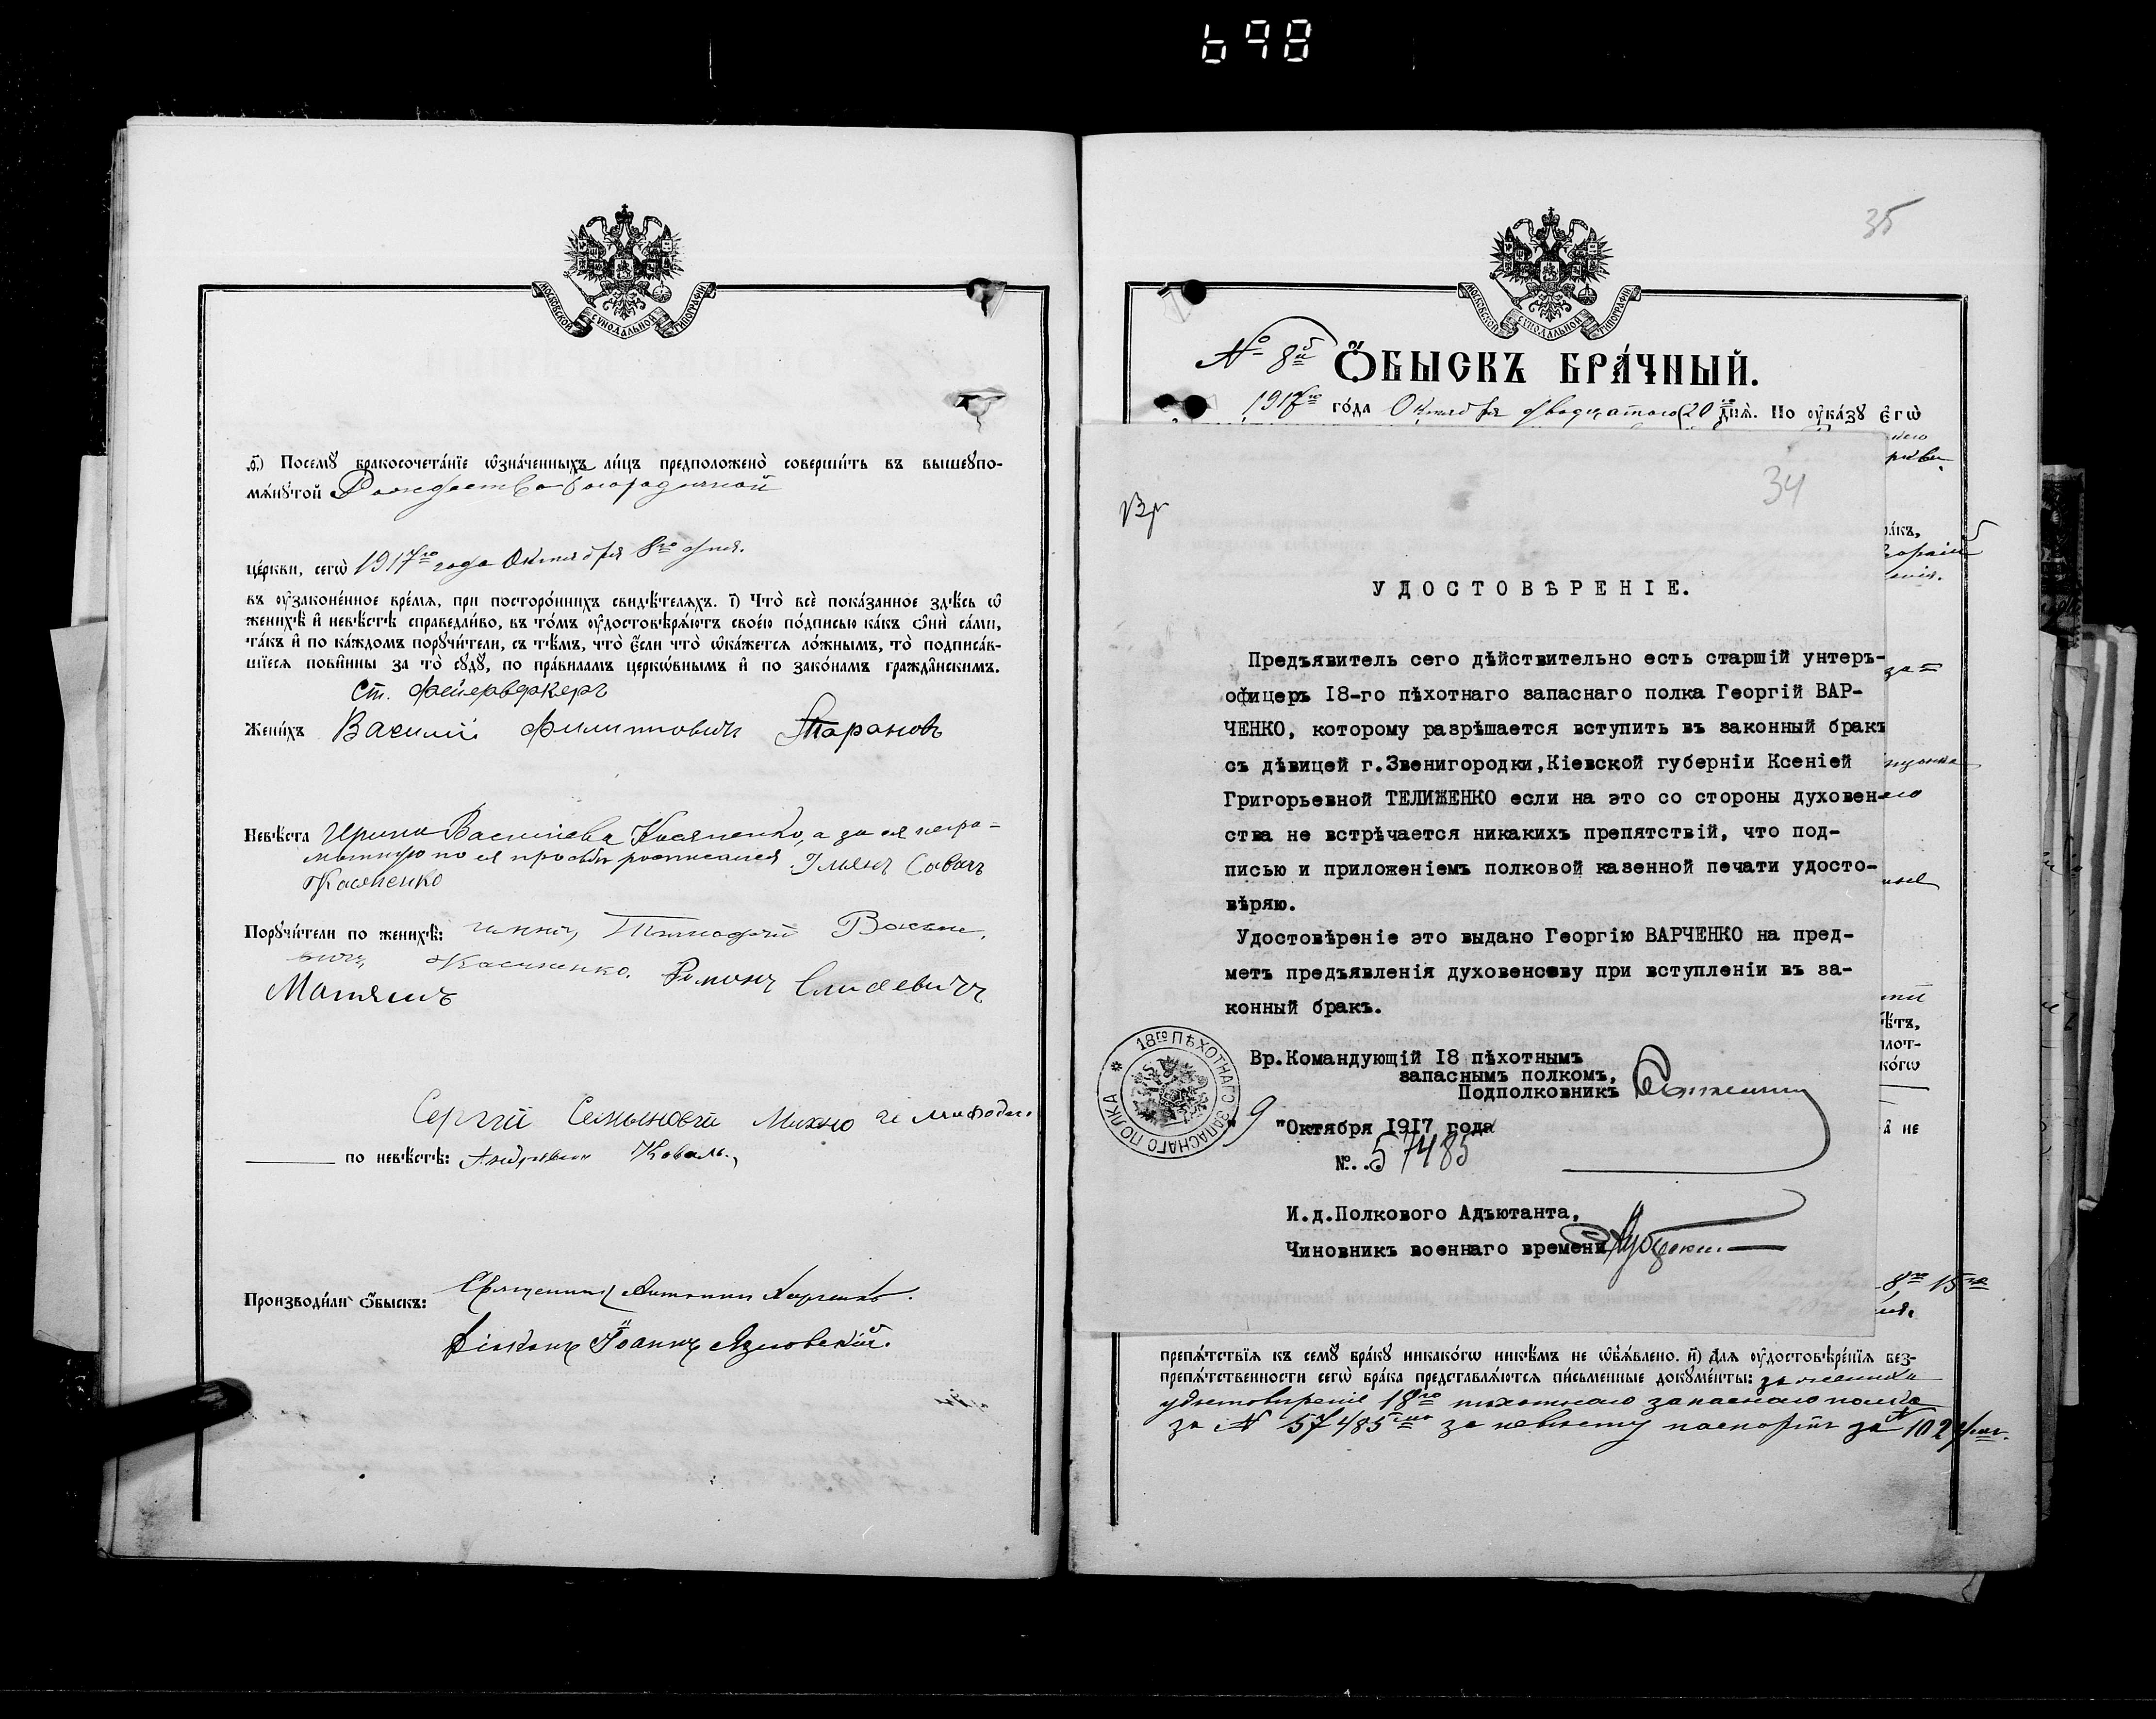 698
МОСКОВСКОЙ СУНОДАЛЬНОЙ ТИПОГРАФІИ
Посемꙋ̀ бракосочета́нїе ѡ҆зна́ченныхъ ли́цъ предположено̀ соверши́ть въ вышеꙋпо-
мѧ́нꙋтой Рождество богородичной
це́ркви, сегѡ̀ 1917го года Октября 8го дня.
въ ᲂу҆зако́ненное вре́мѧ, при посторо́ннихъ свидѣ́телѧхъ. і҃) Что̀ всѐ пока́занное здѣ́сь ѡ҆
женихѣ̀ и҆ невѣ́стѣ справедли́во, въ то́мъ ᲂу҆достовѣрѧ́ютъ свое́ю по́дписью ка́къ ѻ҆нѝ са́ми,
та́къ и҆ по ка́ждомъ порꙋчи́тели, съ тѣ́мъ, что̀ є҆́сли что̀ ѡ҆ка́жетсѧ ло́жнымъ, то̀ подписа́в-
шїесѧ пови́нны за то̀ сꙋдꙋ̀, по пра́виламъ церкѡ́внымъ и҆ по зако́намъ гражда̑нскимъ.
Ст. фейерверкеръ
Жени́хъ Василий Филипповичъ Тарановъ
Невѣ́ста Ирина Васильева Касяненко, а за ея негра-
мотную по ея просьбѣ росписался Савичъ
Касяненко
Порꙋчи́тели по женихѣ̀: Тимофей
Касяненко. Романъ Елисеевичъ
Матяшъ
Сергій Семыновей Михно
по невѣ́стѣ: Коваль
Производи́ли ѻ҆́быскъ: Священникъ
Діаконъ Іоаннъ
35
МОСКОВСКОЙ СУНОДАЛЬНОЙ ТИПОГРАФІИ
№ 8й Ѻ҆́БЫСКЪ БРА́ЧНЫЙ.
1917го го́да Октября двадцатого (20го днѧ̀. По ᲂу҆ка́зꙋ є҆гѡ̀
34
Вр
УДОСТОВѢРЕНІЕ.
Предъявитель сего дѣйствительно есть старшій унтеръ-
офицеръ I8-го пѣхотнаго запаснаго полка Георгій ВАР-
ЧЕНКО, которому разрѣшается вступить въ законный бракъ
съ дѣвицей г.Звенигородки,Кіевской губерніи Ксеніей
Григорьевной ТЕЛИЖЕНКО если на это со стороны духовен-
ства не встрѣчается никакихъ препятствій, что под-
писью и приложеніемъ полковой казенной печати удосто-
вѣряю.
Удостовѣреніе это выдано Георгію ВАРЧЕНКО на пред-
метъ предъявленія духовенсеву при вступленіи въ за-
конный бракъ.
Вр.Командующій I8 пѣхотнымъ
запаснымъ полкомъ,
Подполковникъ
18го ПѢХОТНАГО ЗАПАСНАГО ПОЛКА
" 9 "Октября I9I7 года
№.. 57485
И.д.Полкового Адъютанта,
Чиновникъ военнаго времени
8го 15го
препѧ́тствїѧ къ семꙋ̀ бра́кꙋ никако́гѡ никѣ́мъ не ѡ҆б̾ѧ́влено. и҃) Длѧ ᲂу҆достовѣре́нїѧ без-
препѧ́тственности сегѡ̀ бра́ка представлѧ́ютсѧ пи́сьменные докꙋме́нты: за жениха
удостовѣреніе 18го пехотнаго запаснаго полка
за № 57485 за невѣсту паспортъ за № 102